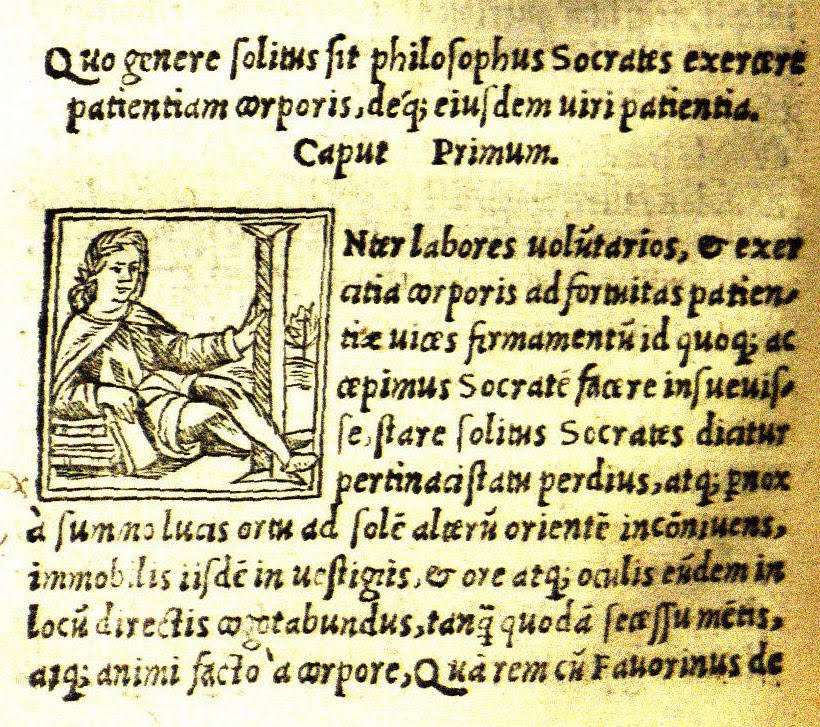 Quo genere ſolitus ſit philoſophus Socrates exercere
patientiam corporis, deq́; eiuſdem uiri patientia.
Caput Primum.
INter labores uolũtarios, & exer
citia corporis ad fortuitas patien-
tiæ uices firmamentũ id quoq; ac
cepimus Socratẽ facere inſueuiſ-
ſe, ſtare ſolitus Socrates dicitur
pertinaci ſtatu perdius, atq; ꝑnox
à ſummo lucis ortu ad ſolẽ alterũ orientẽ incõniuens,
immobilis iiſdẽ in ueſtigijs, & ore atq; oculis eũdem in
locũ directis cogitabundus, tanq̃ quodã ſeceſſu mẽtis,
atq; animi facto à corpore, Quã rem cũ Fauorinus de